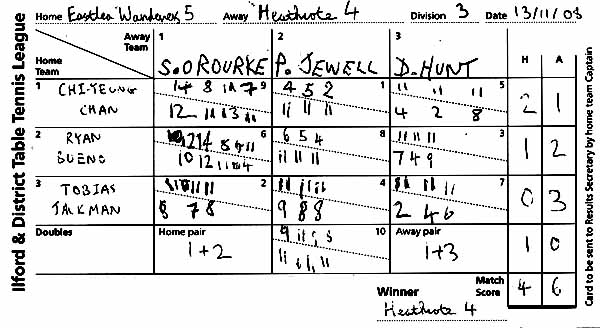 Ilford & District Table Tennis League
Home Eastlea Wanderers 5 Away Heathcote 4 Division 3 Date 13/11/08
Away Team
Home Team
1 S. O ROURKE
2 P. JEWELL
3 D. HUNT
H A
1 CHI-YEUNG CHAN
14 8 11 7 9
12 11 13 11
4 5 2 1
11 11 11
11 11 11 5
4 2 8
2 1
2 RYAN BUENO
6
10 12 11 11 4
6 5 4 8
11 11 11
11 11 11 3
7 4 9
1 2
3 TOBIAS JACKMAN
11 11 2
8 7 8
11 11 11 4
9 8 8
11 11 11 7
2 4 6
0 3
Doubles
Home pair
1+2
9 11 10
11
Away pair
1+3
1 0
Winner
Heathcote 4
Match Score
4 6
Card to be sent to Results Secretary by home team Captain